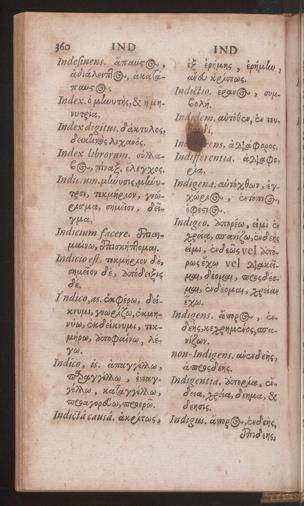 360 IND
Indesinens. ἄπαυστος,
ἀδιάλειπτος, ἀκατά-
παυστος.
Index. ὁ μηνυτὴς, & ἡ μη-
νύτρια.
Index digitus. δάκτυλος,
δεικτικὸς λιχανός.
Index librorum. σύλλα-
βος, πίναξ, ἔλεγχος.
Indicium. μήνυσις, μήνυ-
τρον, τεκμήριον, γνώ-
ρισμα, σημεῖον, δεῖ-
γμα.
Indicium facere.
Indicio est. τεκμήριον δὲ,
σημεῖον δὲ, ἀπόδειξις
δὲ.
Indico, as. ἐκφέρω, δεί-
κνυμι, γνωρίζω, ἐκμη-
νύω, ἐκδείκνυμι, τεκ-
μήρω, ὑποφαίνω, λέ-
γω.
Indico, is. ἀπαγγέλλω,
παραγγέλλω, ἐπαγ-
γέλλω, καταγγέλλω,
Indictâ causâ. ἀκρίτως,
IND
ἐξ ἐρήμης, ἐρήμῳ,
ἄνευ κρίσεως.
Indictio. συμ-
βολή.
Indidem. αὐτόθεν, ἐκ του-
Indifferens. ἀδιάφορος.
Indifferentia. ἀδιαφο-
ρία.
Indigena. αὐτόχθων, ἐγ-
χώριος, ἐντόπιος,
Indigeo. ἀπορέω, εἰμὶ ἐν
χρείᾳ, σπανίζω, ἐνδεής
εἰμι, ἐνδεῶς vel ἀπό-
ρως ἔχω vel διάκει-
μαι, δέομαι, προσδέο-
μαι, ἐνδέομαι, χρείαν
ἔχω.
Indigens. ἄπορος, ἐν-
δεής, κεχρημένος, σπα-
νίζων.
non-Indigens. ἀνενδεής,
ἀπροσδεής.
Indigentia. ἀπορία, ἔν-
δεια, χρεία, δέημα, &
δέησις.
Indigus. ἄπορος, ἐνδεής,
ἐπιδεής,